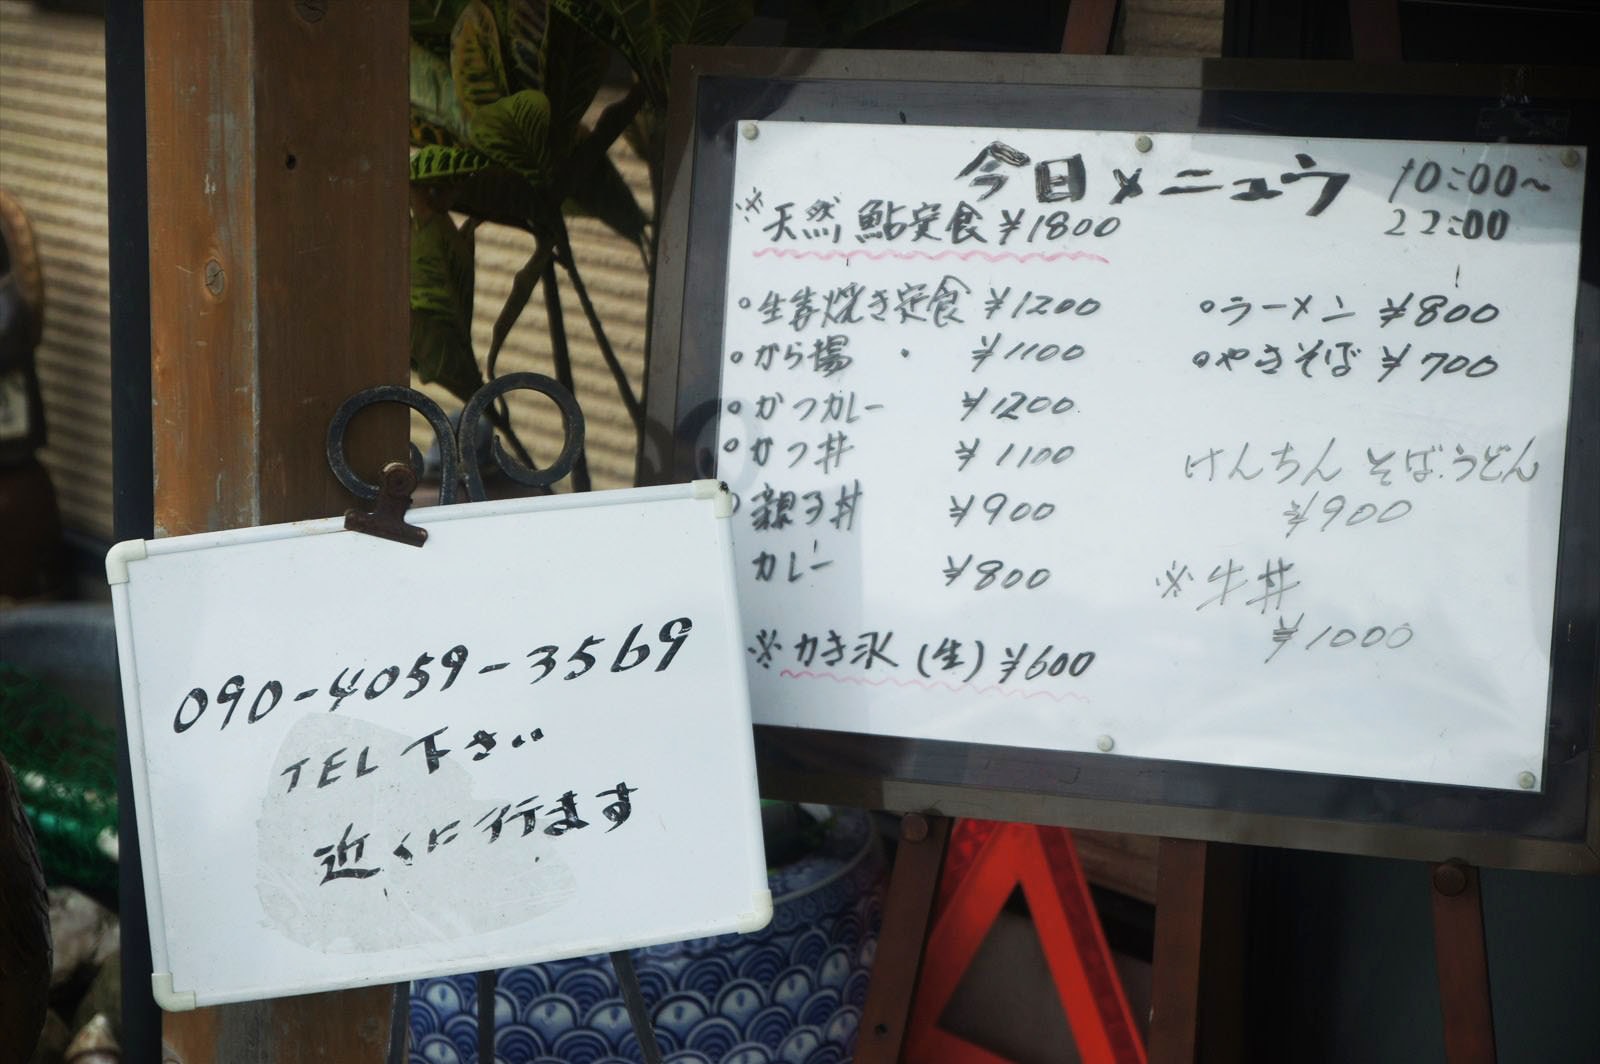 今日メニュウ 10:00〜
22:00
※天然鮎定食 ¥1800
○生姜焼き定食 ¥1200
○から揚 ・ ¥1100
○かつカレー ¥1200
○かつ丼 ¥1100
○親子丼 ¥900
カレー ¥800
※かき氷(生) ¥600
○ラーメン ¥800
○やきそば ¥700
けんちん そば.うどん
¥900
※牛丼
¥1000
090-4059-3569
TEL 下さい
近くに行ます